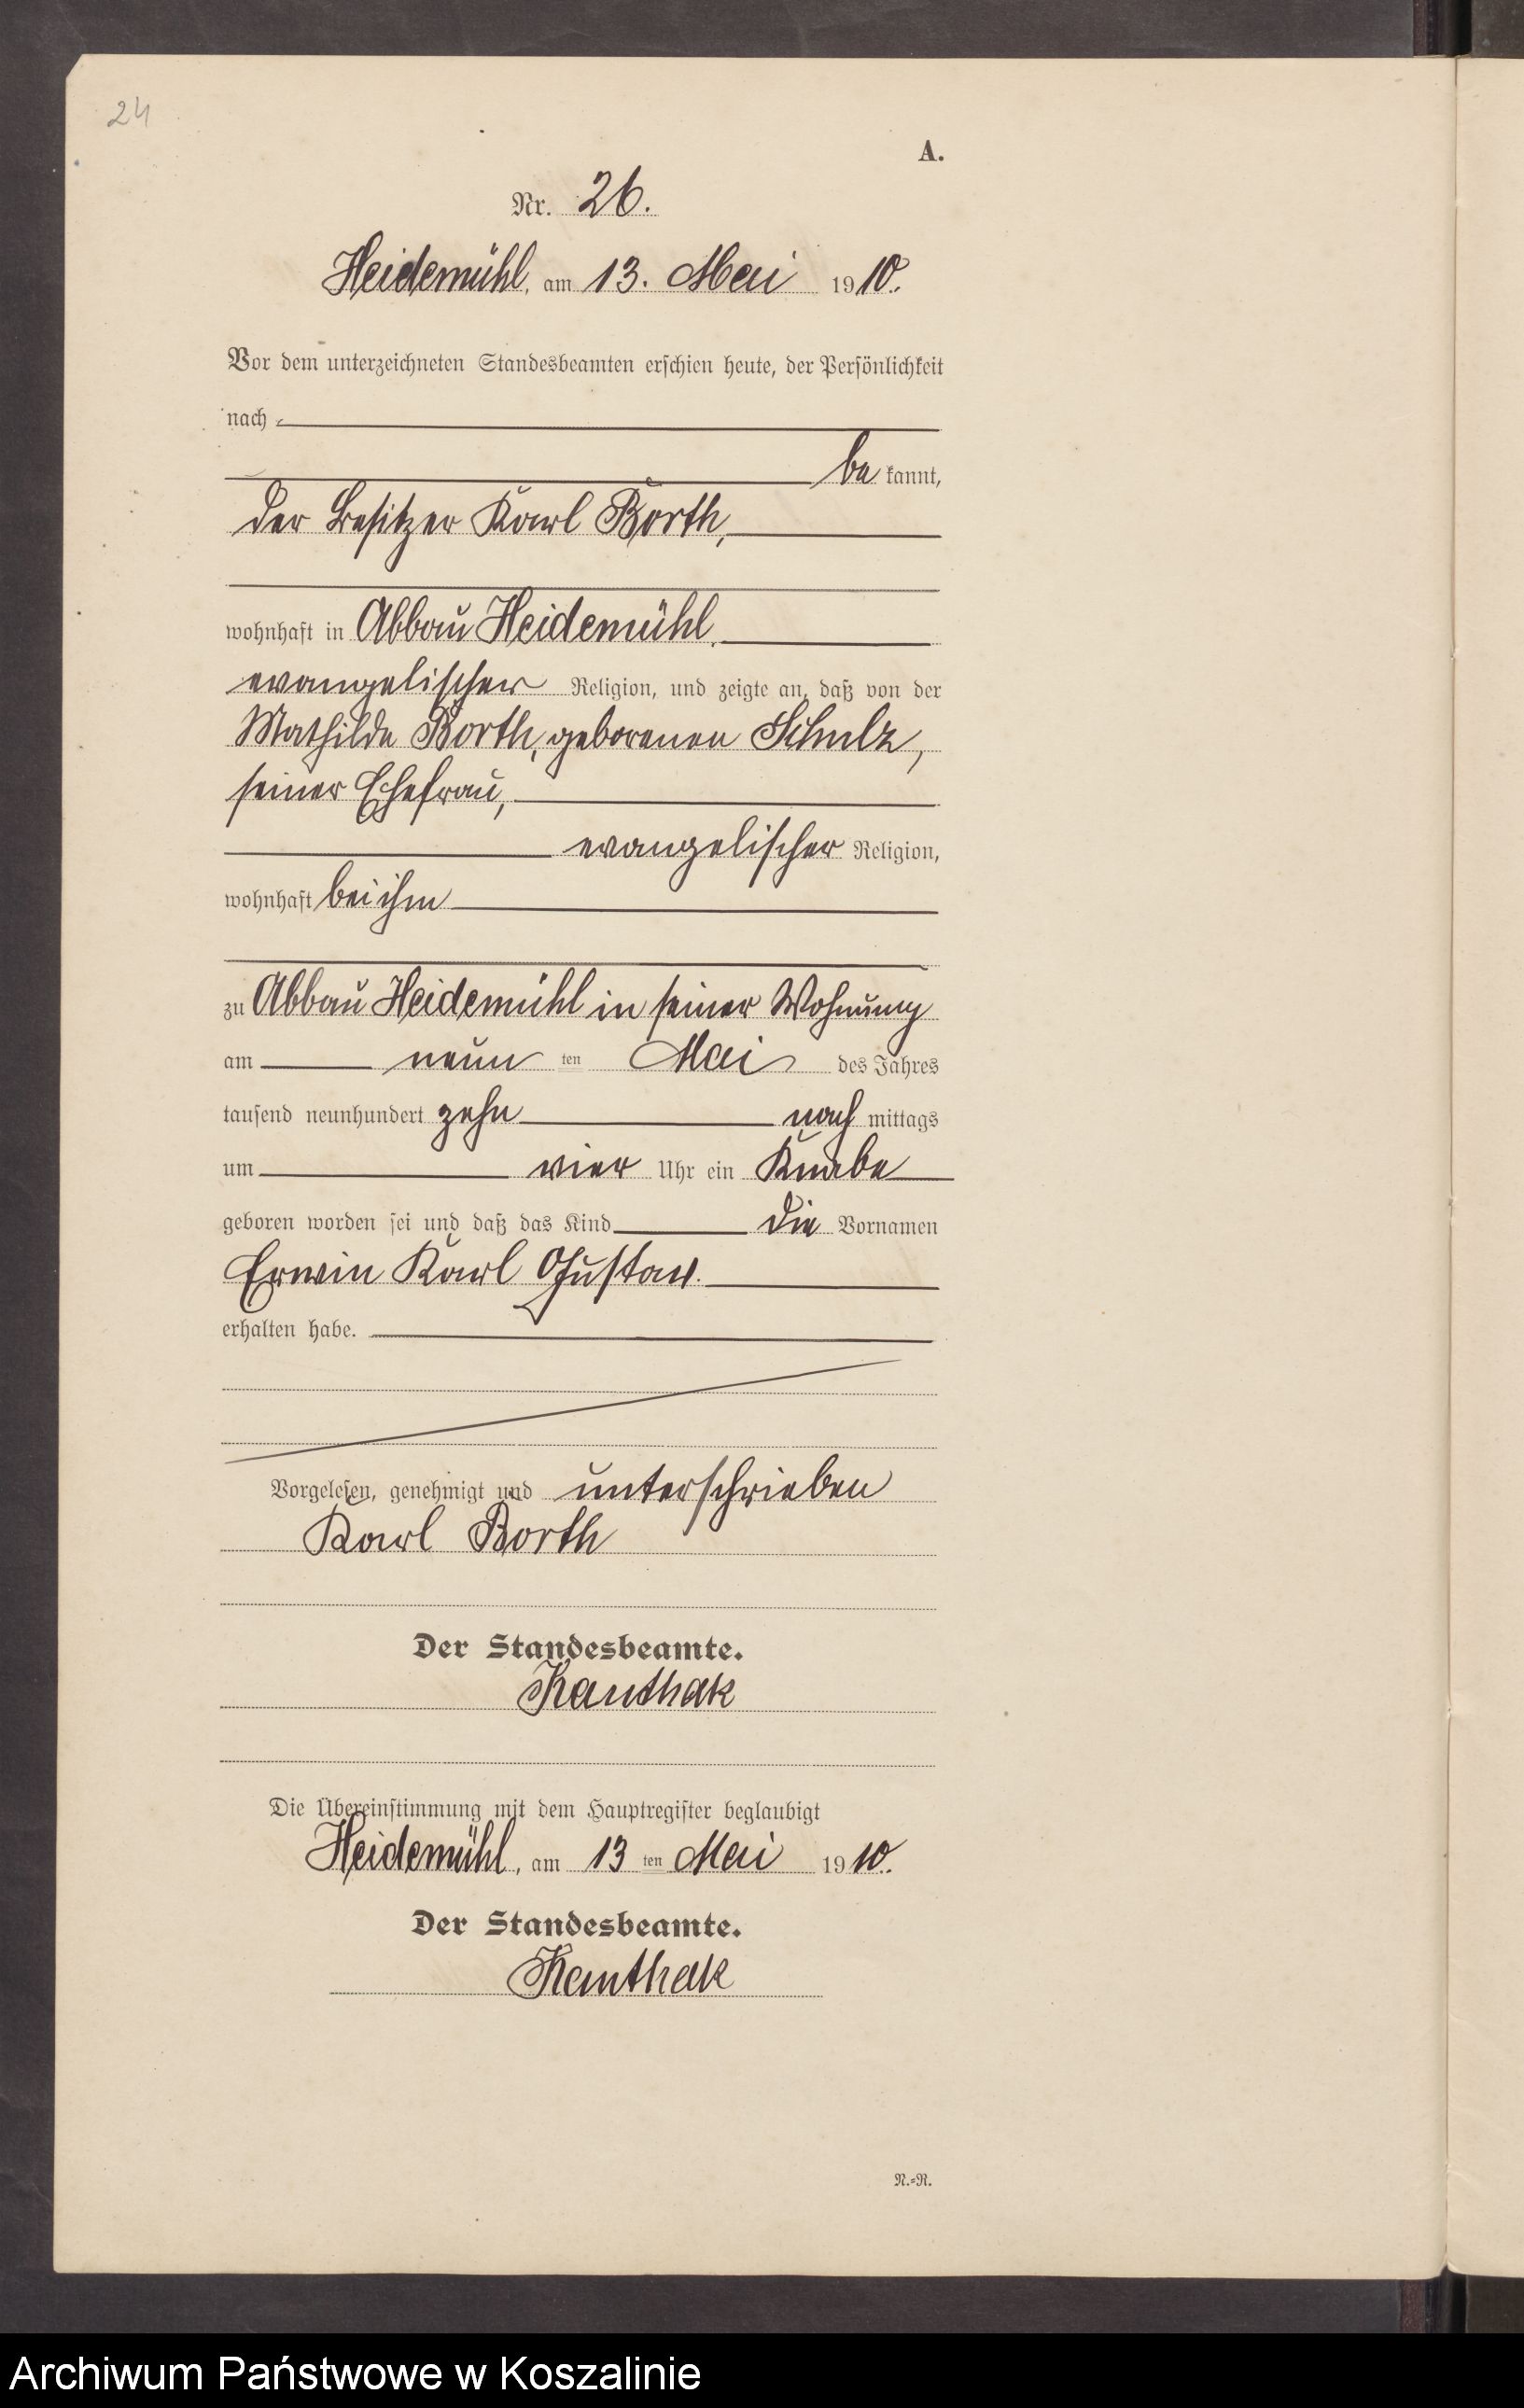 24
A.
Nr. 26.
Heidemühl, am 13. Mai 1910.
Vor dem unterzeichneten Standesbeamten erschien heute, der Persönlichkeit
nach
bekannt,
der Besitzer Karl Borth,
wohnhaft in Abbau Heidemühl,
evangelischer Religion, und zeigte an, daß von der
Mathilde Borth, geborenen Schulz,
seiner Ehefrau,
evangelischer Religion,
wohnhaft bei ihm
zu Abbau Heidemühl in seiner Wohnung
am neun ten Mai des Jahres
tausend neunhundert zehn nach mittags
um vier Uhr ein Knabe
geboren worden sei und daß das Kind die Vornamen
Erwin Karl Gustav.
erhalten habe.
Vorgelesen, genehmigt und unterschrieben
Karl Borth
Der Standesbeamte.
Kanthak
Die Übereinstimmung mit dem Hauptregister beglaubigt
Heidemühl, am 13 ten Mai 1910.
Der Standesbeamte.
Kanthak
N.=R.
Archiwum Państwowe w Koszalinie